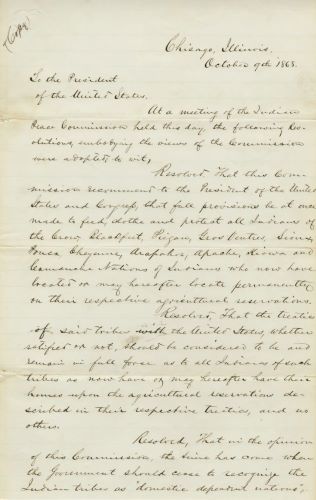 (Copy)
Chicago, Illinois.
October 9th 1868.
To the President
of the United States.
At a meeting of the Indian
Peace Commission held this day, the following Res-
olutions, embodying the views of the Commission
were adopted, to wit,
Resolved, That this Com-
mission recommend to the President of the United
States and Congress, that full provisions be at once
made to feed, clothe and protect all Indians of
the Crow, Blackfeet, Piegan, Gros Ventres, Sioux,
Ponca, Cheyenne, Arapahoe, Apache, Kiowa and
Comanche Nations of Indians who now have
located or may hereafter locate permanently
on their respective agricultural reservations.
Resolved, That the treaties
of said tribes with the United States, whether
ratified or not, should be considered to be and
remain in full force as to all Indians of such
tribes as now have or may hereafter have their
homes upon the agricultural reservations de-
scribed in their respective treaties, and no
others.
Resolved, That in the opinion
of this Commission, the time has come when
the Government should cease to recognize the
Indian tribes as "domestic dependent nations",